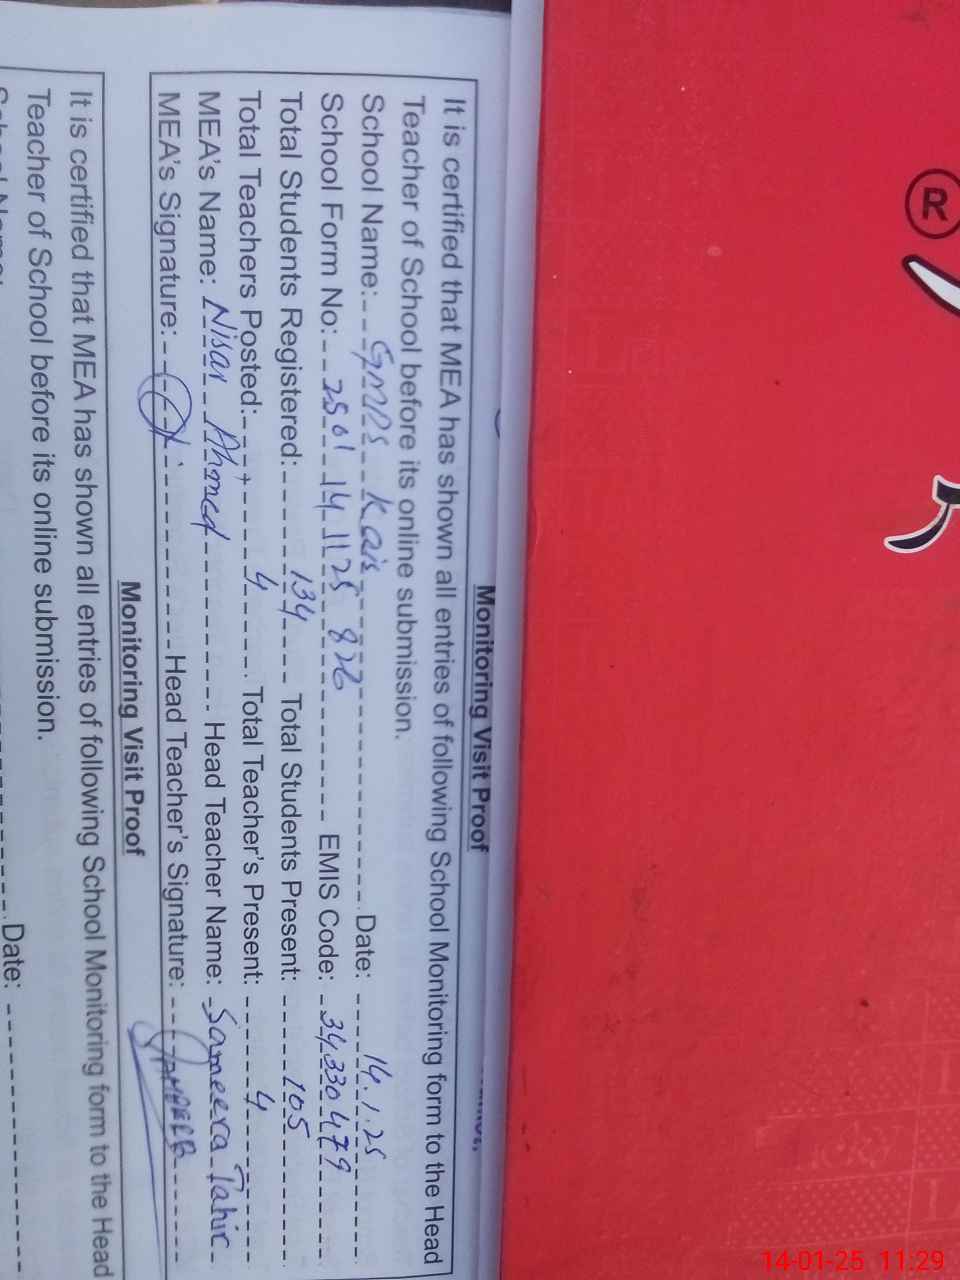 Monitoring Visit Proof
It is certified that MEA has shown all entries of following School Monitoring form to the Head
Teacher of School before its online submission.
School Name: GMPS Kais Date: 14.1.25
School Form No: 2501 14 1125 826 EMIS Code: 34330479
Total Students Registered: 134 Total Students Present: 105
Total Teachers Posted: 4 Total Teacher's Present: 4
MEA's Name: Nisar Ahmed Head Teacher Name: Sameera Tahir
MEA's Signature: Head Teacher's Signature:
Monitoring Visit Proof
It is certified that MEA has shown all entries of following School Monitoring form to the Head
Teacher of School before its online submission.
Date:
R
14-01-25 11:29